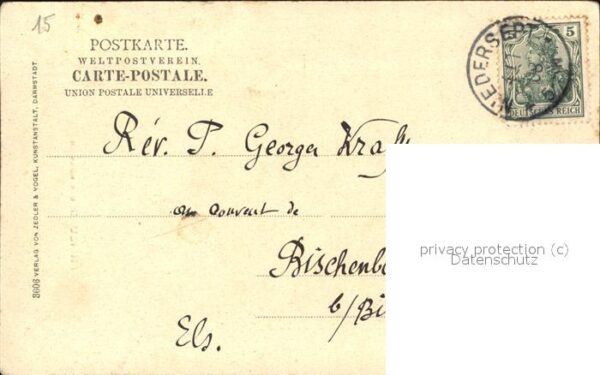 15
POSTKARTE.
WELTPOSTVEREIN.
CARTE-POSTALE.
UNION POSTALE UNIVERSELLE
NIEDERSEPT
5
DEUTSCHES REICH
Rév. P. Georges
au couvent de
Bischenb
b/Bi
Els.
3606 VERLAG VON ZEDLER & VOGEL, KUNSTANSTALT, DARMSTADT.
privacy protection (c)
Datenschutz